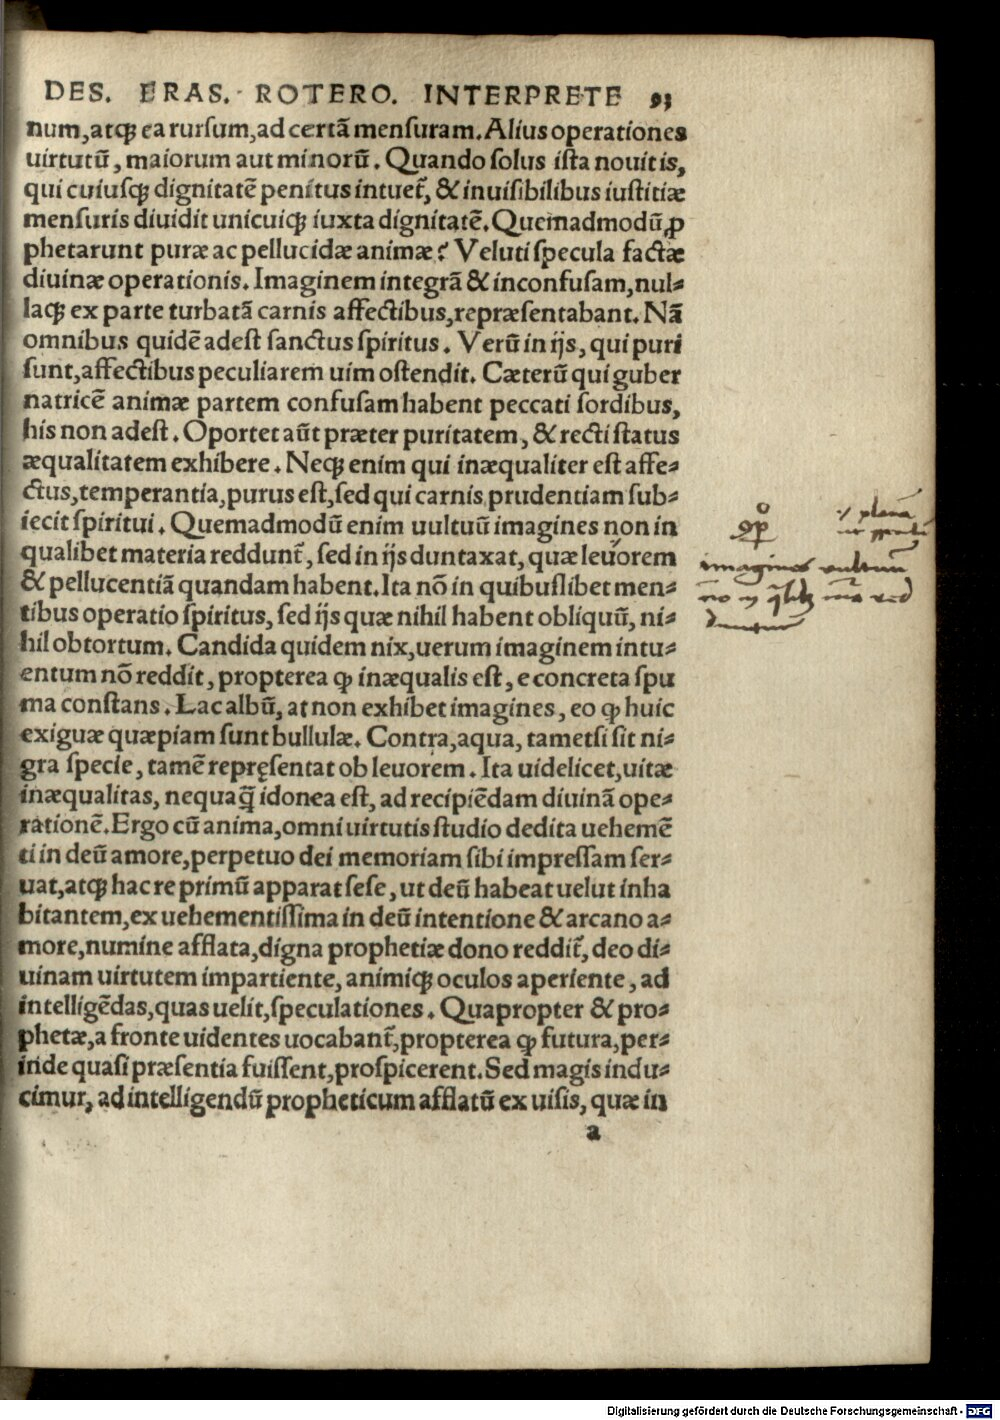 DES. ERAS. ROTERO. INTERPRETE 93
num,atqꝫ ea rursum,ad certã mensuram. Alius operationes
uirtutũ, maiorum aut minorũ. Quando solus ista nouit is,
qui cuiusqꝫ dignitatẽ penitus intuet᷑, & inuisibilibus iustitiæ
mensuris diuidit unicuiqꝫ iuxta dignitatẽ. Quemadmodũ ꝓ
phetarunt puræ ac pellucidæ animæ? Veluti specula factæ
diuinæ operationis. Imaginem integrã & inconfusam, nul⸗
laqꝫ ex parte turbatã carnis affectibus, repræsentabant. Nã
omnibus quidẽ adest sanctus spiritus. Verũ in ijs, qui puri
sunt, affectibus peculiarem uim ostendit. Cæterũ qui guber
natricẽ animæ partem confusam habent peccati sordibus,
his non adest. Oportet aũt præter puritatem, & recti status
æqualitatem exhibere. Neqꝫ enim qui inæqualiter est affe⸗
ctus, temperantia, purus est, sed qui carnis prudentiam sub⸗
iecit spiritui. Quemadmodũ enim uultuũ imagines non in
qualibet materia reddunt᷑, sed in ijs duntaxat, quæ leuorem
& pellucentiã quandam habent. Ita nõ in quibuslibet men⸗
tibus operatio spiritus, sed ijs quæ nihil habent obliquũ, ni⸗
hil obtortum. Candida quidem nix, uerum imaginem intu⸗
entum nõ reddit, propterea ꝙ inæqualis est, e concreta spu
ma constans. Lac albũ, at non exhibet imagines, eo ꝙ huic
exiguæ quæpiam sunt bullulæ. Contra, aqua, tametsi sit ni⸗
gra specie, tamẽ repręsentat ob leuorem. Ita uidelicet, uitæ
inæqualitas, nequaq̃ idonea est, ad recipiẽdam diuinã ope⸗
rationẽ. Ergo cũ anima, omni uirtutis studio dedita uehemẽ
ti in deũ amore, perpetuo dei memoriam sibi impressam ser⸗
uat, atqꝫ hac re primũ apparat sese, ut deũ habeat uelut inha
bitantem, ex uehementissima in deũ intentione & arcano a⸗
more, numine afflata, digna prophetiæ dono reddit᷑, deo di⸗
uinam uirtutem impartiente, animiqꝫ oculos aperiente, ad
intelligẽdas, quas uelit, speculationes. Quapropter & pro⸗
phetæ, a fronte uidentes uocabant᷑, propterea ꝙ futura, per⸗
inde quasi præsentia fuissent, prospicerent. Sed magis indu⸗
cimur, ad intelligendũ propheticum afflatũ ex uisis, quæ in
a
imagines uultuum